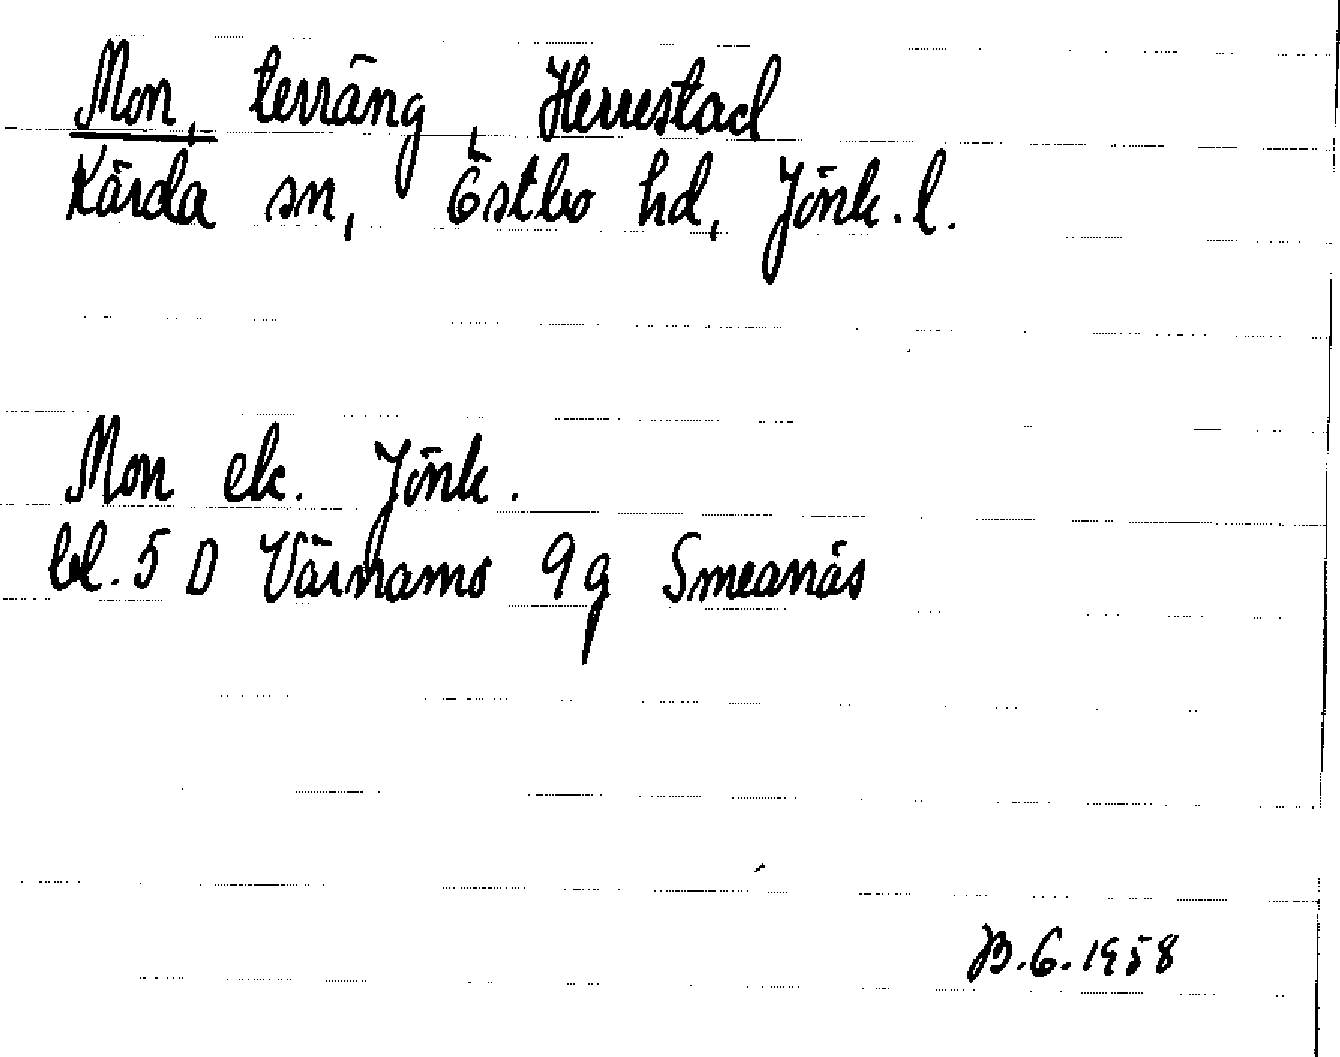 Mon, terräng, Herrestad
Kärda sn, Östbo hd, Jönk. l.
Mon ek. Jönk.
bl. 5 D Värnamo 9g Smeanäs
B. G. 1958